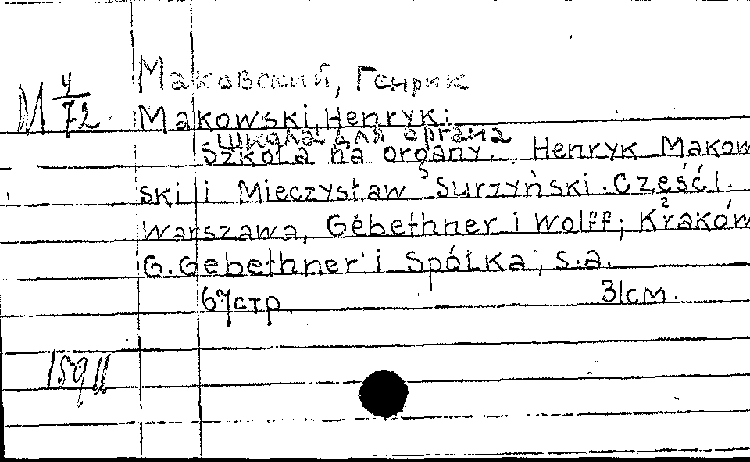 Маковский, Генрик
М 4/72
Makowski, Henryk:
Школа для органа
Szkoła na organy. Henryk Makow
ski i Mieczysław Surzyński. Część I.
Warszawa, Gebethner i Wolff; Kraków
G. Gebethner i Spółka, s.a.
67 стр 31 см.